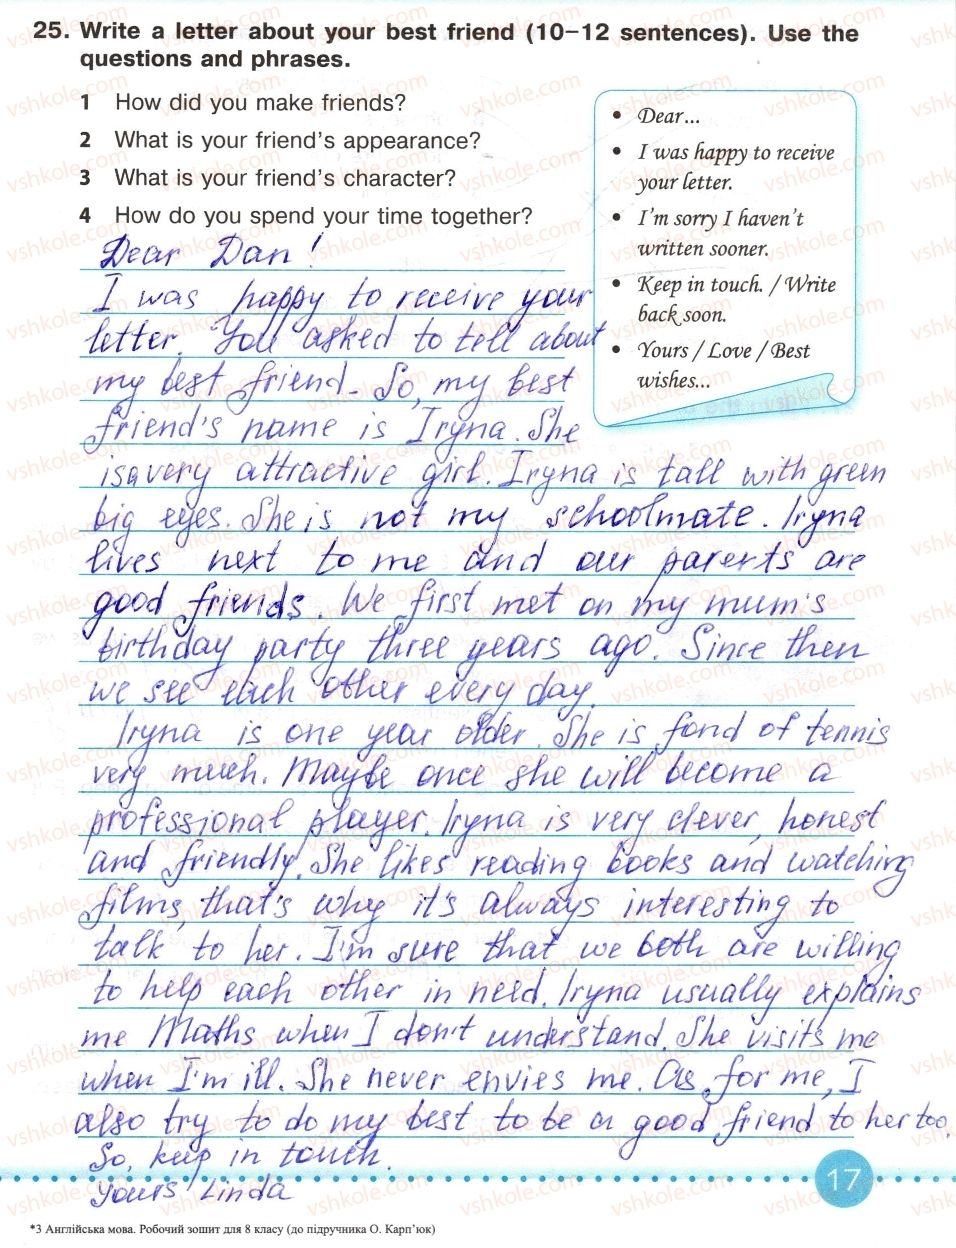 25. Write a letter about your best friend (10–12 sentences). Use the
questions and phrases.
1 How did you make friends?
2 What is your friend's appearance?
3 What is your friend's character?
4 How do you spend your time together?
• Dear...
• I was happy to receive
your letter.
• I'm sorry I haven't
written sooner.
• Keep in touch. / Write
back soon.
• Yours / Love / Best
wishes...
Dear Dan!
I was happy to receive your
letter. You asked to tell about
my best friend. So, my best
friend's name is Iryna. She
is a very attractive girl. Iryna is tall with green
big eyes. She is not my schoolmate. Iryna
lives next to me and our parents are
good friends. We first met on my mum's
birthday party three years ago. Since then
we see each other every day.
Iryna is one year older. She is fond of tennis
very much. Maybe once she will become a
professional player. Iryna is very clever, honest
and friendly. She likes reading books and watching
films, that's why it's always interesting to
talk to her. I'm sure that we both are willing
to help each other in need. Iryna usually explains
me Maths when I don't understand. She visits me
when I'm ill. She never envies me. As for me, I
also try to do my best to be a good friend to her too.
So, keep in touch.
Yours Linda
17
*3 Англійська мова. Робочий зошит для 8 класу (до підручника О. Карп'юк)
vshkole.com